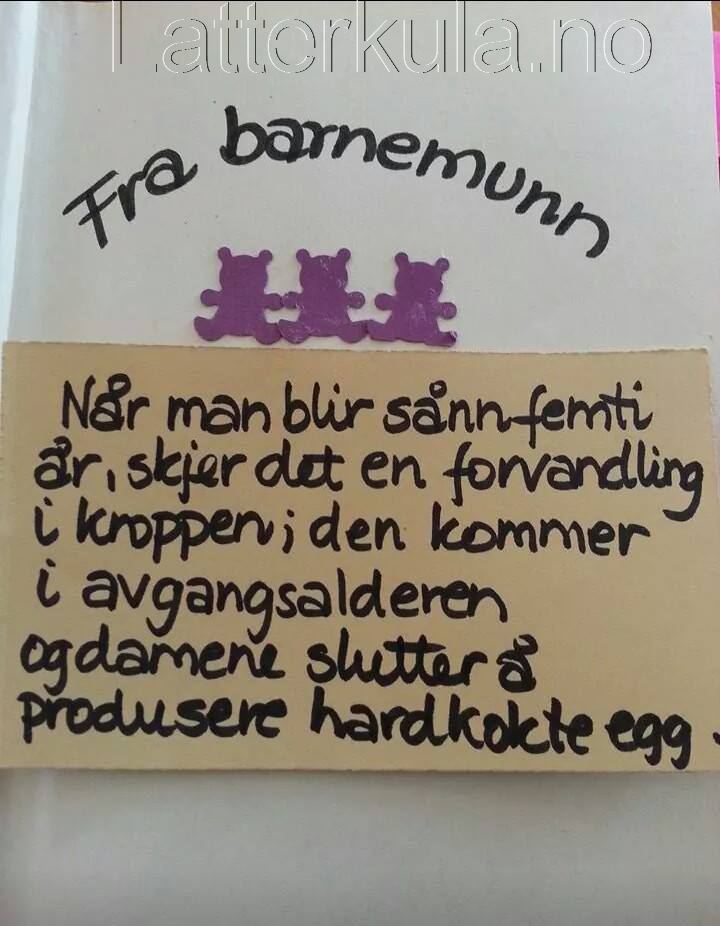 Latterkula.no
Fra barnemunn
Når man blir sånn femti
år, skjer det en forvandling
i kroppen; den kommer
i avgangsalderen
og damene slutter å
produsere hardkokte egg.